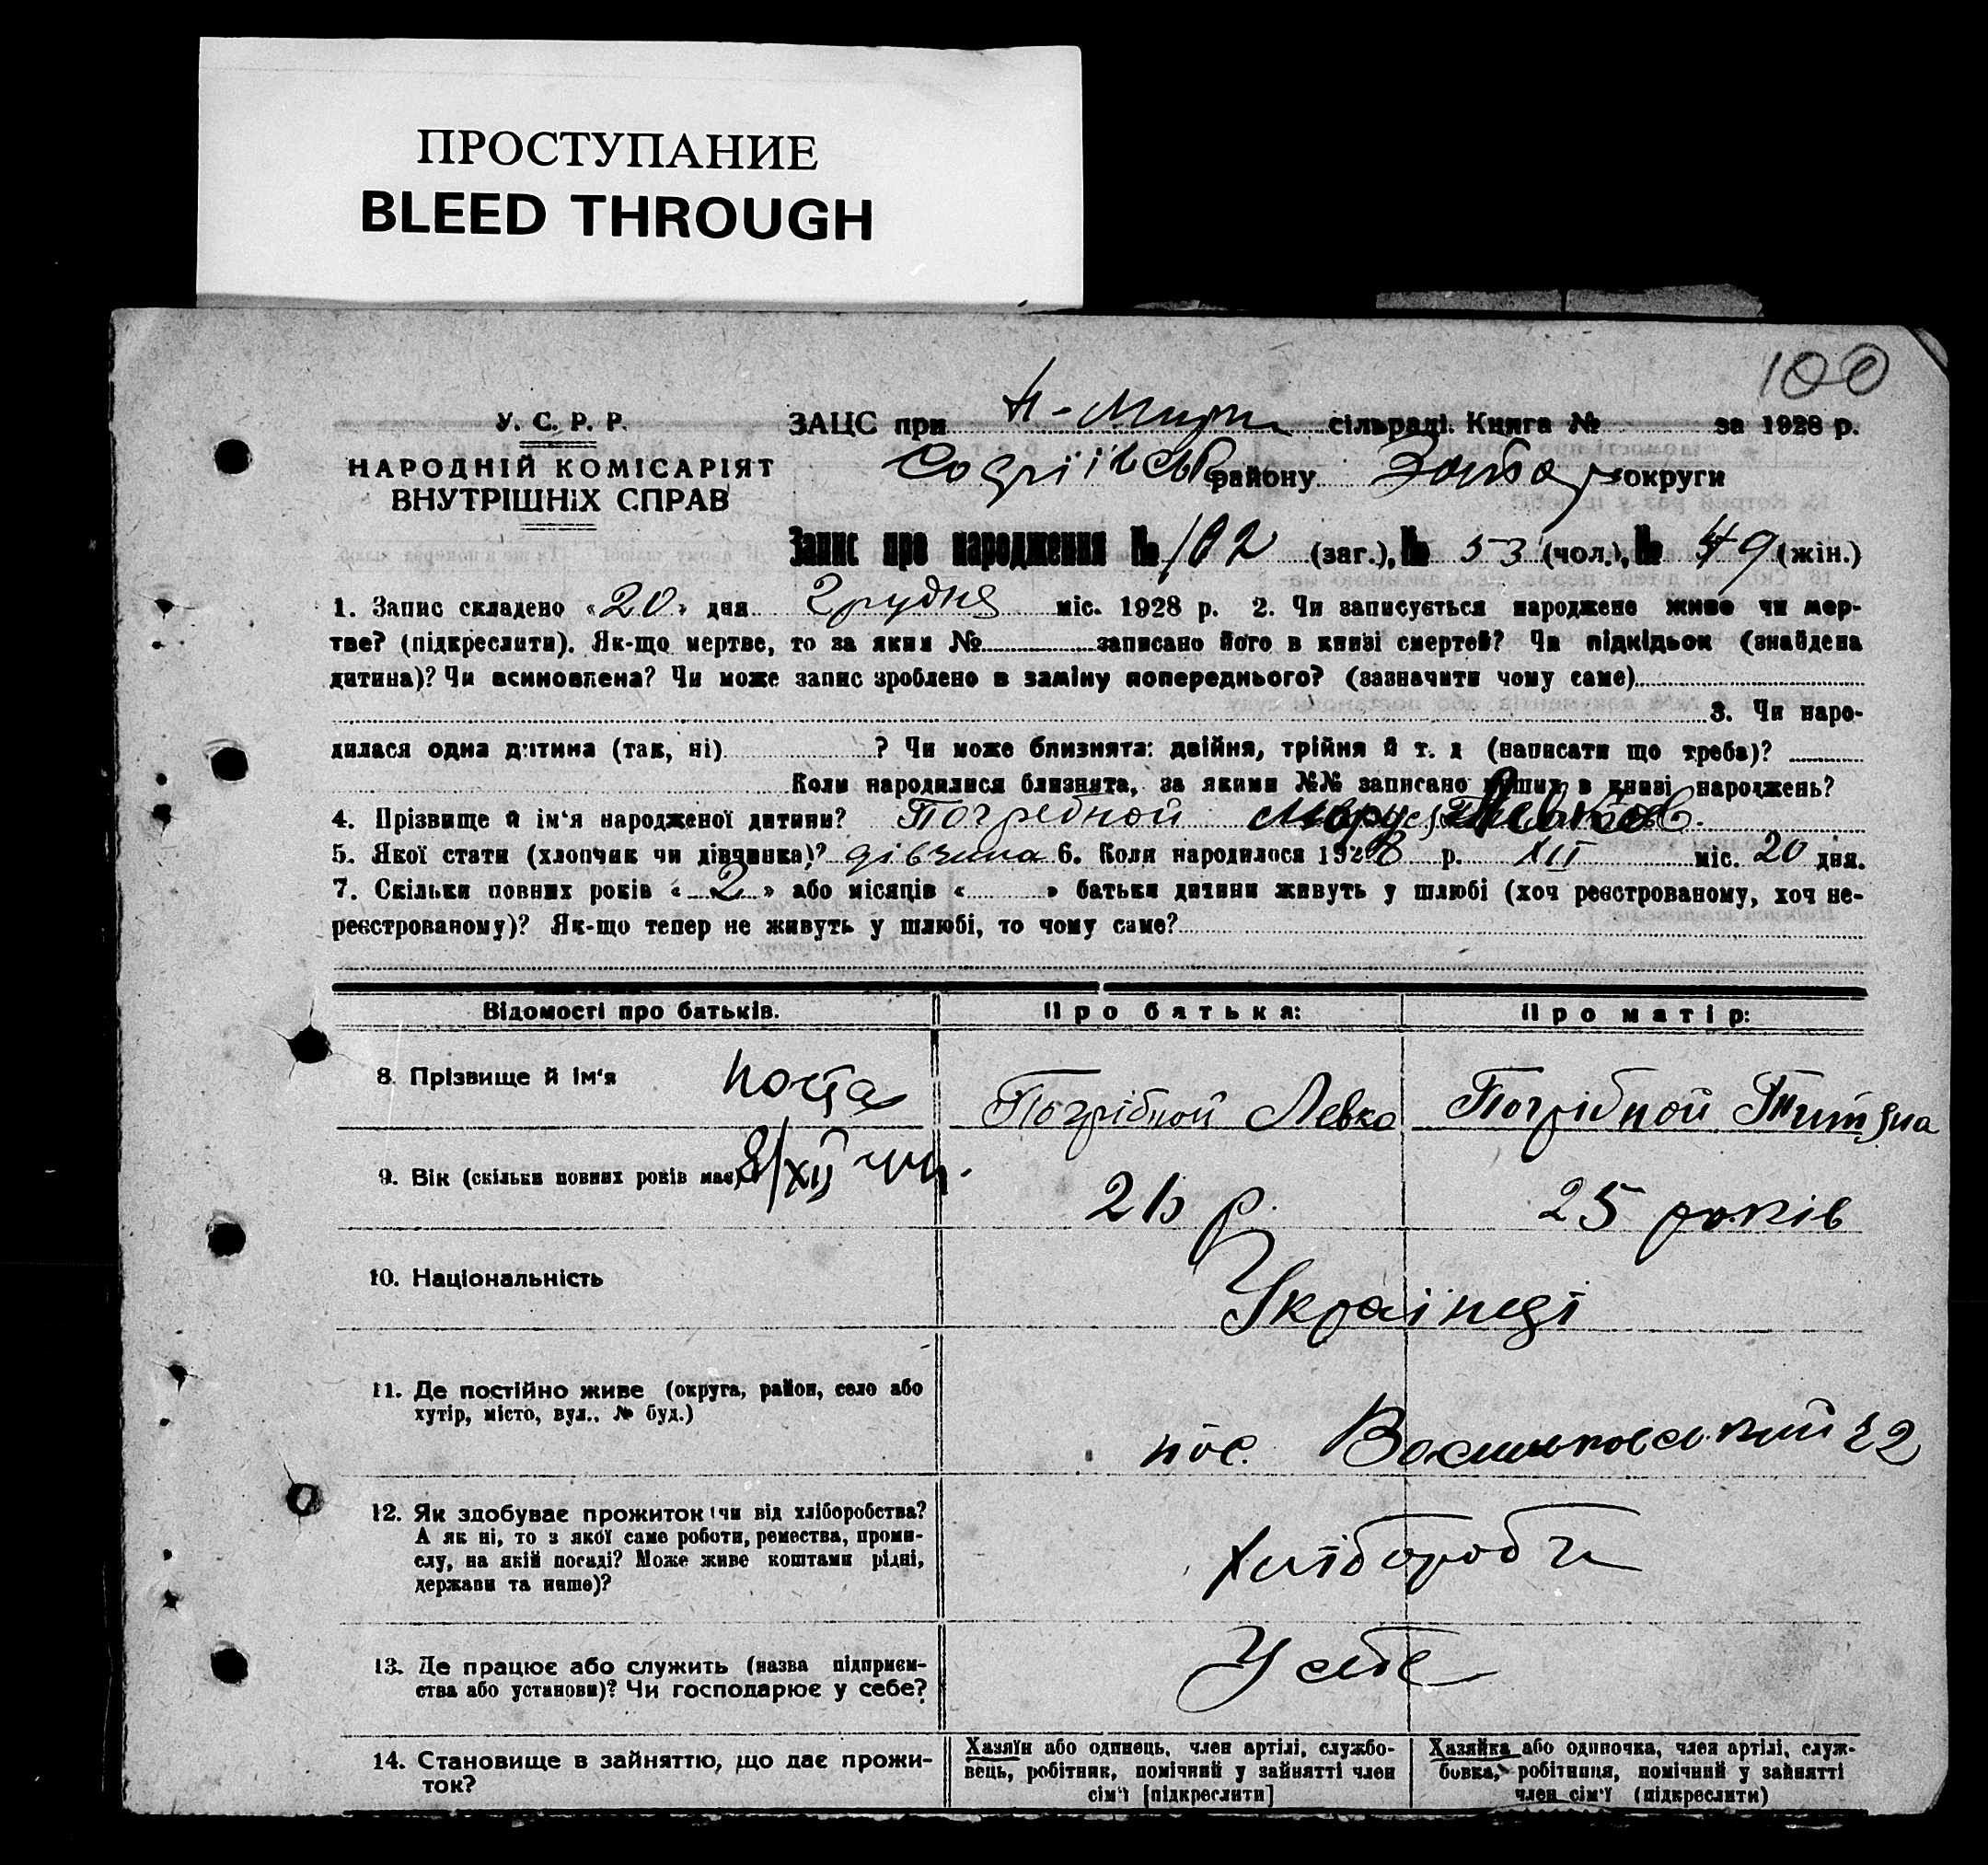 ПРОСТУПАНИЕ
BLEED THROUGH
100
У. С. Р. Р.
НАРОДНІЙ КОМІСАРІЯТ
ВНУТРІШНІХ СПРАВ
ЗАЦС при Н-Мирг сільраді. Книга № за 1928 р.
Софіївськ району Запор округи
Запис про народження № 102 (заг.), № 53 (чол.), № 49 (жін.)
1. Запис складено «20» дня Грудня міс. 1928 р. 2. Чи записується народжене живе чи мер-
тве? (підкреслити). Як-що мертве, то за яким № записано його в книзі смертей? Чи підкідьок (знайдена
дитина)? Чи всиновлена? Чи може запис зроблено в заміну попереднього? (зазначити чому саме)
3. Чи наро-
дилася одна дитина (так, ні) ? Чи може близнята: двійня, трійня й т. д (написати що треба)?
Коли народилися близнята, за якими №№ записано инших в книзі народжень?
4. Прізвище й ім'я народженої дитини? Погребной
5. Якої стати (хлопчик чи дівчинка)? дівчина 6. Коли народилося 1928 р. XII міс. 20 дня.
7. Скільки повних років «2» або місяців « » батьки дитини живуть у шлюбі (хоч реєстрованому, хоч не-
реєстрованому)? Як-що тепер не живуть у шлюбі, то чому саме?
Відомості про батьків. Про батька: Про матір:
8. Прізвище й ім'я Погрібной Левко Погрібной
9. Вік (скільки повних років має) 26 р. 25 років
10. Національність Українці
11. Де постійно живе (округа, район, село або
хутір, місто, вул., № буд.)
пос. 22
12. Як здобуває прожиток (чи від хліборобства?
А як ні, то з якої саме роботи, ремества, проми-
слу, на якій посаді? Може живе коштами рідні,
держави та инше)?
Хлібороби
13. Де працює або служить (назва підприєм-
ства або установи)? Чи господарює у себе?
У себе
14. Становище в зайняттю, що дає прожи-
ток?
Хазяїн або одинець, член артілі, службо-
вець, робітник, помічний у зайнятті член
сім'ї [підкреслити]
Хазяйка або одиночка, член артілі, служ-
бовка, робітниця, помічний у зайнятті
член сім'ї (підкреслити)